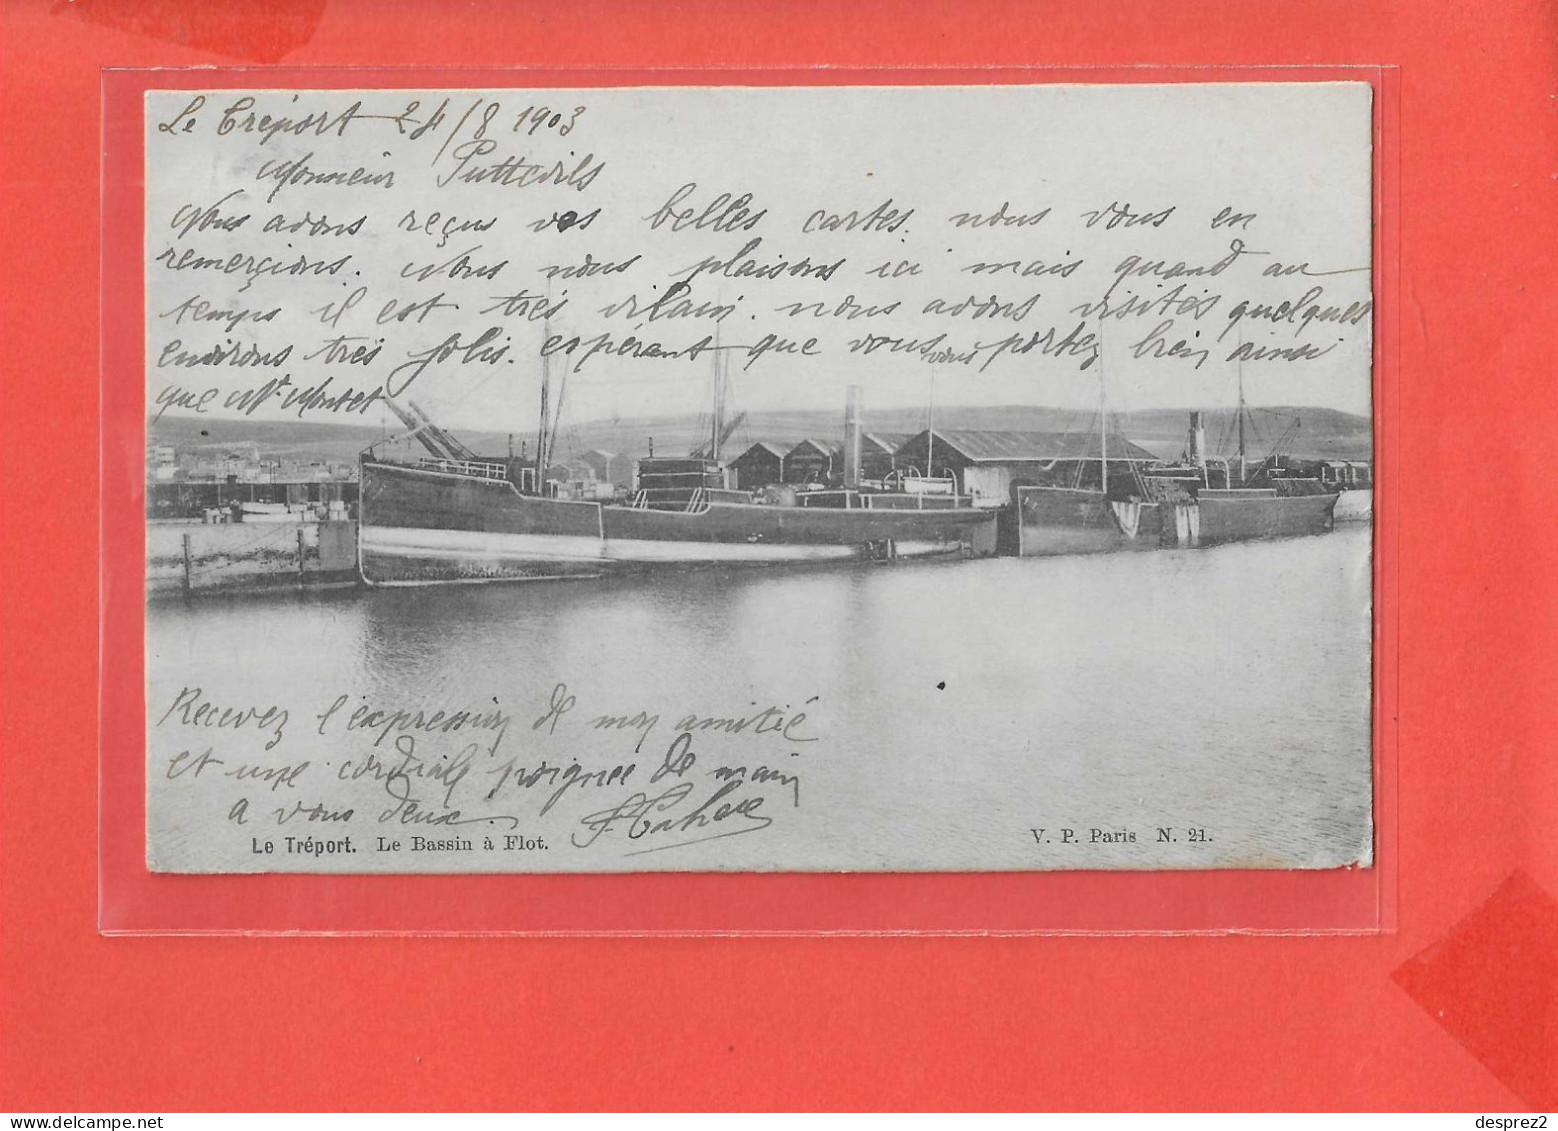 Le Tréport 24/8 1903
Monsieur Puttevils
Nous avons reçus vos belles cartes. nous vous en
remerçions. Nous nous plaisons ici mais quand au
temps il est très vilain. nous avons visités quelques
environs très jolis. espérant que vous vous portez bien ainsi
que Mr. Montet
Recevez l'expression de mon amitié
et une cordiale poignee de main
a vous deux.
Le Tréport. Le Bassin à Flot.
V. P. Paris N. 21.
desprez2